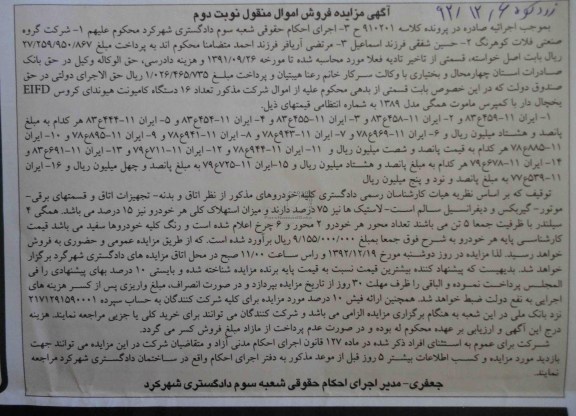 زودکوه ۹۲/۱۲/۶
آگهی مزایده فروش اموال منقول نوبت دوم
بموجب اجرائیه صادره در پرونده کلاسه ۹۱۰۲۰۱ ح ۳- اجرای احکام حقوقی شعبه سوم دادگستری شهرکرد محکوم علیهم ۱- شرکت گروه
صنعتی فلات کوهرنگ ۲- حسین شفقی فرزند اسماعیل ۳- مرتضی آریافر فرزند احمد متضامنا محکوم اند به پرداخت مبلغ ۲۷/۲۵۹/۹۵۰/۸۶۷
ریال بابت اصل خواسته، قسمتی از تاخیر تادیه فعلا مورد محاسبه شده تا مورخه ۱۳۹۱/۰۹/۲۶ و هزینه دادرسی، حق الوکاله وکیل در حق بانک
صادرات استان چهارمحال و بختیاری با وکالت سرکار خانم رعنا هیبتیان و پرداخت مبلغ ۱/۰۲۶/۴۶۵/۷۳۵ ریال حق الاجرای دولتی در حق
صندوق دولت که در این خصوص بابت قسمتی از بدهی محکوم علیه از اموال شرکت مذکور تعداد ۱۶ دستگاه کامیونت هیوندای کروس EIFD
یخچال دار با کمپرس ماموت همگی مدل ۱۳۸۹ به شماره انتظامی قیمتهای ذیل.
۱- ایران ۱۱-۴۵۹ع۸۳ و ۲- ایران ۱۱-۴۵۸ع۸۳ و ۳- ایران ۱۱-۴۵۵ع۸۳ و ۴- ایران ۱۱-۴۵۴ع۸۳ و ۵- ایران ۱۱-۴۴۴ع۸۳ هر کدام به مبلغ
پانصد و هشتاد میلیون ریال و ۶- ایران ۱۱-۹۶۹ع۷۸ و ۷- ایران ۱۱-۹۲۳ع۷۸ و ۸- ایران ۱۱-۹۴۱ع۷۸ و ۹- ایران ۱۱-۸۹۵ع۷۸ و ۱۰- ایران
۱۱-۸۸۵ع۷۸ هر کدام به قیمت پانصد و شصت میلیون ریال و ۱۱- ایران ۱۱-۹۴۴ع۷۸ و ۱۲- ایران ۱۱-۷۱۱ع۷۹ و ۱۳- ایران ۱۱-۶۹۱ع۸۳ و
۱۴- ایران ۱۱-۶۷۸ع۷۹ هر کدام به مبلغ پانصد و هشتاد میلیون ریال و ۱۵-ایران ۱۱-۷۲۵ع۷۹ به مبلغ پانصد و چهل میلیون ریال و ۱۶- ایران
۱۱-۵۳۹ع۷۷ به مبلغ پانصد و نود و پنج میلیون ریال
توقیف که بر اساس نظریه هیات کارشناسان رسمی دادگستری کلیه خودروهای مذکور از نظر اتاق و بدنه- تجهیزات اتاق و قسمتهای برقی-
موتور- گیربکس و دیفرانسیل سالم است-لاستیک ها نیز ۷۵ درصد دارند و میزان استهلاک کلی هر خودرو نیز ۱۵ درصد می باشد. همگی ۴
سیلندر با ظرفیت جمعا ۵ تن می باشند تعداد محور هر خودرو ۲ محور و ۶ چرخ اعلام شده است و رنگ کلیه خودروها سفید می باشد قیمت
کارشناسی پایه هر خودرو به شرح فوق جمعا بمبلغ ۹/۱۵۵/۰۰۰/۰۰۰ ریال برآورد شده است. که از طریق مزایده عمومی و حضوری به فروش
خواهد رسید. لذا مزایده در روز دوشنبه مورخ ۱۳۹۲/۱۲/۱۹ و راس ساعت ۱۱/۰۰ صبح در محل اتاق مزایده های دادگستری شهرکرد برگزار
خواهد شد. بدیهیست که پیشنهاد کننده بیشترین قیمت نسبت به قیمت پایه برنده مزایده شناخته شده و بایستی ۱۰ درصد بهای پیشنهادی را فی
المجلس پرداخت نموده و الباقی را ظرف مهلت ۳۰ روز از تاریخ مزایده بپردازد و در صورت انصراف، مبلغ واریزی پس از کسر هزینه های
اجرایی به نفع دولت ضبط خواهد شد. همچنین ارائه فیش ۱۰ درصد مورد مزایده برای کلیه شرکت کنندگان به حساب سپرده ۲۱۷۱۲۹۱۵۹۰۰۰۱
نزد بانک ملی در این شعبه به هنگام برگزاری مزایده الزامی می باشد و شرکت کنندگان می توانند برای خرید کلی یا جزیی مراجعه نمایند. هزینه
درج این آگهی و ارزیابی بر عهده محکوم له بوده و در صورت عدم پرداخت از مازاد مبلغ فروش کسر می گردد.
شرکت برای عموم به استثنای افراد ذکر شده در ماده ۱۲۷ قانون اجرای احکام مدنی آزاد و متقاضیان شرکت در این مزایده می توانند جهت
بازدید مورد مزایده و کسب اطلاعات بیشتر ۵ روز قبل از موعد مذکور به دفتر اجرای احکام واقع در ساختمان دادگستری شهرکرد مراجعه
نمایند.
جعفری- مدیر اجرای احکام حقوقی شعبه سوم دادگستری شهرکرد